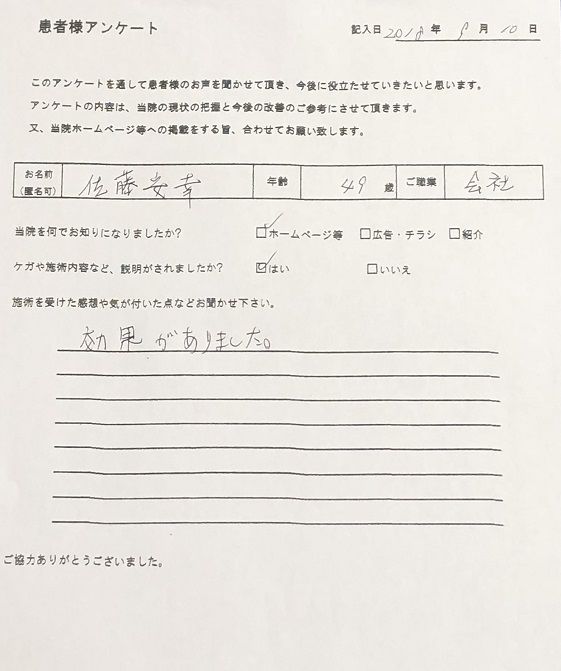 患者様アンケート
記入日 2018 年 9 月 10 日
このアンケートを通して患者様のお声を聞かせて頂き、今後に役立たせていきたいと思います。
アンケートの内容は、当院の現状の把握と今後の改善のご参考にさせて頂きます。
又、当院ホームページ等への掲載をする旨、合わせてお願い致します。
お名前(匿名可) 佐藤安幸 年齢 49 歳 ご職業 会社
当院を何でお知りになりましたか? ☑ホームページ等 □広告・チラシ □紹介
ケガや施術内容など、説明がされましたか? ☑はい □いいえ
施術を受けた感想や気が付いた点などお聞かせ下さい。
効果がありました。
ご協力ありがとうございました。